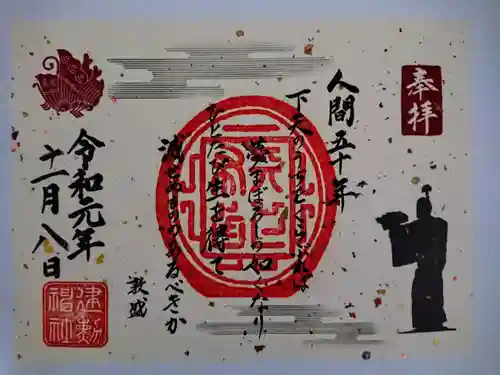 奉拝
人間五十年
下天のうちをくらぶれば
夢まぼろしの如くなり
ひとたび生を得て
滅せぬもののあるべきか
敦盛
令和元年
十一月八日
建勲
神社